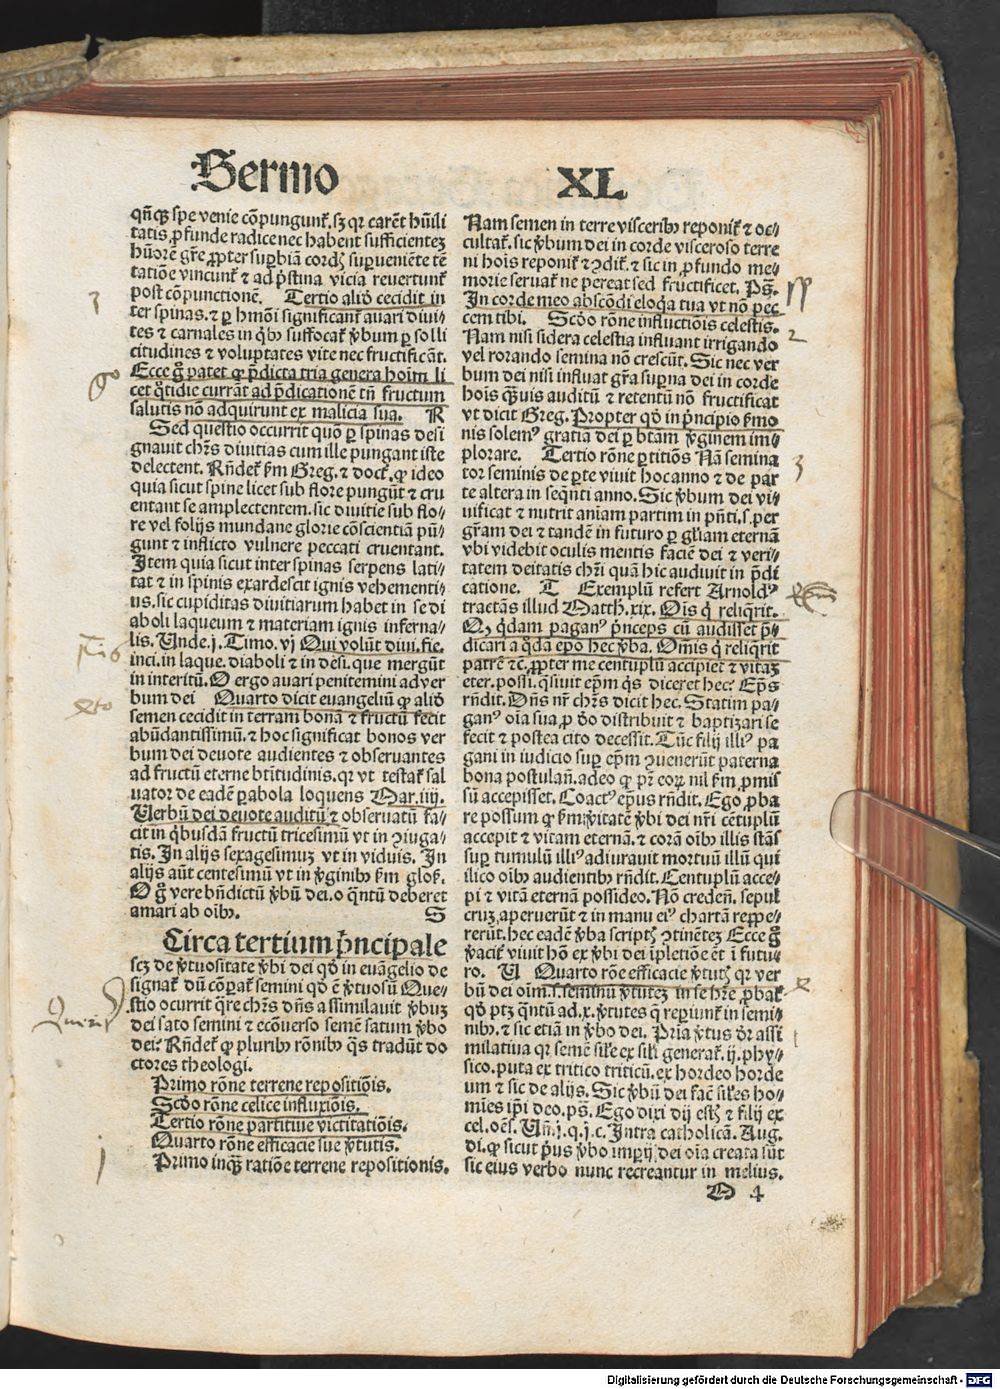 Sermo XL
qñcꝫ spe venie cõpungunt᷑. sꝫ qꝛ carẽt hũili
tatis, ꝓfunde radice nec habent sufficienteꝫ
hũorẽ gr̃e ꝓpter suꝑbiã cordꝭ suꝑueniẽte tẽ
tatiõe vincunt᷑ ⁊ ad pr̃stina vicia reuertunt᷑
post cõpunctionẽ. Tertio aliđ cecidit in
ter spinas. ⁊ ꝑ hmõi significant᷑ auari diui⸗
tes ⁊ carnales in qͥbꝰ suffocat᷑ v̾bum ꝑ solli
citudines ⁊ voluptates vite nec fructificãt.
Ecce gͦ patet ꝙ p̃dicta tria genera hoĩm li
cet q̃tidie currãt ad p̃dicationẽ tñ fructum
salutis nõ adquirunt ex malicia sua. R
Sed questio occurrit quõ ꝑ spinas desi
gnauit chr̃s diuitias cum ille pungant iste
delectent. Rñdet᷑ ẜm Greg. ⁊ doct᷑. ꝙ ideo
quia sicut spine licet sub flore pungũt ⁊ cru
entant se amplectentem. sic diuitie sub flo⸗
re vel folijs mundane glorie cõscientiã pũ⸗
gunt ⁊ inflicto vulnere peccati cruentant.
Item quia sicut inter spinas serpens lati⸗
tat ⁊ in spinis exardescit ignis vehementi⸗
us. sic cupiditas diuitiarum habet in se di
aboli laqueum ⁊ materiam ignis inferna⸗
lis. Unde.j. Timo. vj Qui volũt diui. fie.
inci. in laque. diaboli ⁊ in desi. que mergũt
in interitũ. O ergo auari penitemini ad ver
bum dei Quarto dicit euangeliũ ꝙ aliđ
semen cecidit in terram bonã ⁊ fructũ fecit
abũdantissimũ. ⁊ hoc significat bonos ver
bum dei deuote audientes ⁊ obseruantes
ad fructũ eterne btĩtudinis. qꝛ vt testat᷑ sal
uator de eadẽ ꝑabola loquens Mar. iiij.
Uerbũ dei deuote auditũ ⁊ obseruatũ fa⸗
cit in qͥbusdã fructũ tricesimũ vt in ↄiuga⸗
tis. In alijs sexagesimuꝫ vt in viduis. In
alijs aũt centesimũ vt in v̾ginibꝰ ẜm glos̃.
O gͦ vere bñdictũ v̾bũ dei. o q̃ntũ deberet
amari ab oĩbꝰ. S
Circa tertium pͥncipale
scꝫ de v̾tuositate v̾bi dei qđ in euãgelio de
signat᷑ dũ cõꝑat᷑ semini qđ ẽ v̾tuosũ Que⸗
stio ocurrit q̃re chr̃s dñs assimilauit v̾buꝫ
dei sato semini ⁊ ecõuerso semẽ satum v̾bo
dei. Rñdet᷑ ꝙ pluribꝰ rõnibꝰ q̃s tradũt do
ctores theologi.
Primo rõne terrene repositiõis.
Scđo rõne celice influxiõis.
Tertio rõne partitiue victitatiõis.
Quarto rõne efficacie siue v̾tutis.
Primo inqͣꝫ ratiõe terrene repositionis.
Nam semen in terre visceribꝰ reponit᷑ ⁊ oc⸗
cultat᷑. sic v̾bum dei in corde visceroso terre
ni hoĩs reponit᷑ ⁊ ↄdit᷑. ⁊ sic in ꝓfundo me⸗
morie seruat᷑ ne pereat sed fructificet. Ps̃.
In corde meo abscõdi eloq̃a tua vt nõ pec
cem tibi. Scđo rõne influctiõis celestis.
Nam nisi sidera celestia influant irrigando
vel rorando semina nõ crescũt. Sic nec ver
bum dei nisi influat gr̃a suꝑna dei in corde
hoĩs qͣuis auditũ ⁊ retentũ nõ fructificat
vt dicit Greg. Propter qđ in pͥncipio ẜmo
nis solemꝰ gratia dei ꝑ btãm v̾ginem im⸗
plorare. Tertio rõne ꝑtitiõis Nã semina
tor seminis de ꝑte viuit hoc anno ⁊ de par
te altera in seq̃nti anno. Sic v̾bum dei vi⸗
uificat ⁊ nutrit aniam partim in pñti. s. per
gr̃am dei ⁊ tandẽ in futuro ꝑ gliam eternã
vbi videbit oculis mentis faciẽ dei ⁊ veri⸗
tatem deitatis chr̃i quã hic audiuit in p̃di
catione. T Exemplũ refert Arnoldꝰ
tractãs illud Matth. xix. Oĩs qͥ reliq̃rit.
Q, qͥdam paganꝰ pͥnceps cũ audisset p̃⸗
dicari a qͦdã epõ hec v̾ba. Omis qͥ reliq̃rit
patrẽ ⁊ č. ꝓpter me centuplũ accipiet ⁊ vitaꝫ
eter. possi. q̃siuit ep̃m qͥs diceret hec. Ep̃s
rñdit. Dñs nr̃ chr̃s dicit hec. Statim pa⸗
ganꝰ oĩa sua ꝓ đo distribuit ⁊ baptizari se
fecit ⁊ postea cito decessit. Tũc filij illiꝰ pa
gani in iudicio suꝑ ep̃m ↄuenerũt paterna
bona postulañ. adeo ꝙ pr̃ coꝝ nil ẜm ꝓmis
sũ accepisset. Coactꝰ ep̃us rñdit. Ego ꝓba
re possum ꝙ ẜm v̾itatẽ v̾bi dei nr̃i cẽtuplũ
accepit ⁊ vitam eternã. ⁊ corã oĩbꝰ illis stãs
suꝑ tumulũ illiꝰ adiurauit mortuũ illũ qui
ilico oĩbꝰ audientibꝰ rñdit. Centuplũ acce⸗
pi ⁊ vitã eternã possideo. Nõ credeñ. sepul
cruꝫ aperuerũt ⁊ in manu eiꝰ chartã reppe⸗
rerũt. hec eadẽ v̾ba scriptꝭ ↄtinẽteꝫ Ecce gͦ
v̾acit᷑ viuit hõ ex v̾bi dei ĩpletiõe ẽt ĩ futu⸗
ro. V Quarto rõe efficacie v̾tutꝭ qꝛ ver
bũ dei oĩm. s. seminũ v̾tuteꝫ in se hr̃e ꝓbat᷑
qđ ptꝫ q̃ntũ ad. x. v̾tutes q̃ reꝑiunt᷑ in semi⸗
nibꝰ. ⁊ sic etiã in v̾bo dei. Pria v̾tus dr̃ assi
milatiua qꝛ semẽ sile ex sili generat᷑. ij. phy⸗
sico. puta ex tritico triticũ. ex hordeo horde
um ⁊ sic de alijs. Sic v̾bũ dei fac̃ siles ho⸗
mĩes ip̃i deo. ps̃. Ego dixi dij estꝭ ⁊ filij ex
cel. oẽs. Uñ. j. q. j. c. Intra catholicã. Aug.
di. ꝙ sicut pͥus v̾bo imperij dei oĩa creata sũt
sic eius verbo nunc recreantur in melius.
O 4
3
gͦ
xto
Querit᷑
j
2
3
Digitalisierung gefördert durch die Deutsche Forschungsgemeinschaft - DFG